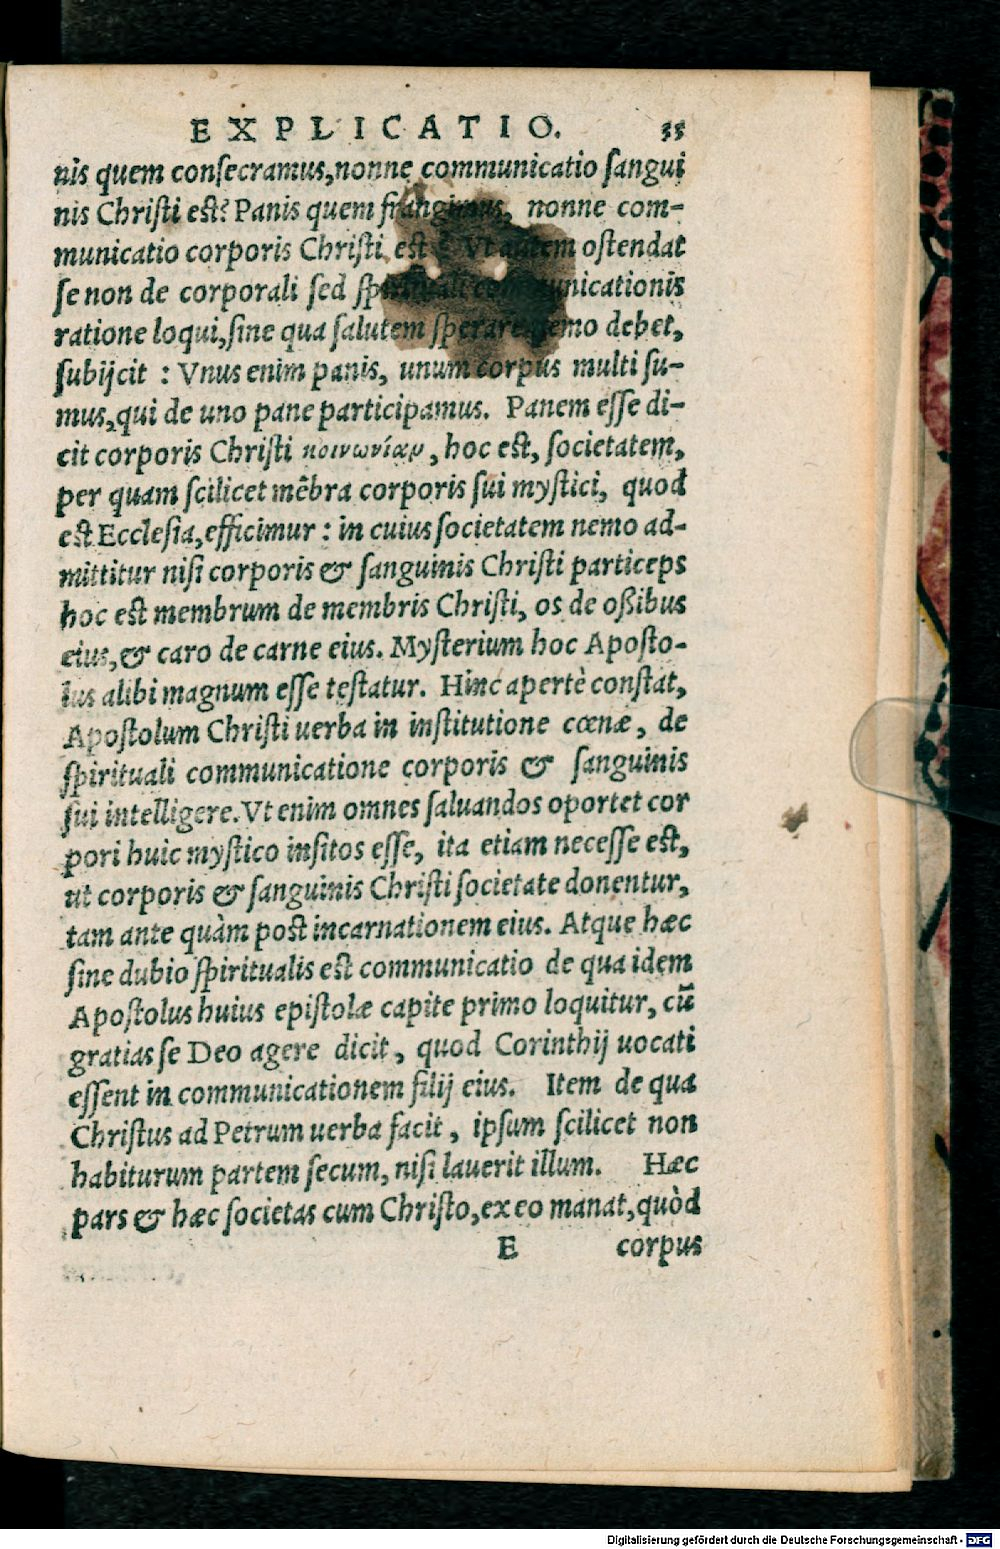 EXPLICATIO. 33
nis quem consecramus, nonne communicatio sangui
nis Christi est? Panis quem frangimus, nonne com-
municatio corporis Christi est? Vt autem ostendat
se non de corporali sed spirituali communicationis
ratione loqui, sine qua salutem sperare nemo debet,
subijcit : Vnus enim panis, unum corpus multi su-
mus, qui de uno pane participamus. Panem esse di-
cit corporis Christi κοινωνίαν, hoc est, societatem,
per quam scilicet mẽbra corporis sui mystici, quod
est Ecclesia, efficimur : in cuius societatem nemo ad-
mittitur nisi corporis & sanguinis Christi particeps
hoc est membrum de membris Christi, os de oßibus
eius, & caro de carne eius. Mysterium hoc Aposto-
lus alibi magnum esse testatur. Hinc apertè constat,
Apostolum Christi uerba in institutione cœnæ, de
spirituali communicatione corporis & sanguinis
sui intelligere. Vt enim omnes saluandos oportet cor
pori huic mystico insitos esse, ita etiam necesse est,
ut corporis & sanguinis Christi societate donentur,
tam ante quàm post incarnationem eius. Atque hæc
sine dubio spiritualis est communicatio de qua idem
Apostolus huius epistolæ capite primo loquitur, cũ
gratias se Deo agere dicit, quod Corinthij uocati
essent in communicationem filij eius. Item de qua
Christus ad Petrum uerba facit, ipsum scilicet non
habiturum partem secum, nisi lauerit illum. Hæc
pars & hæc societas cum Christo, ex eo manat, quòd
E corpus
Digitalisierung gefördert durch die Deutsche Forschungsgemeinschaft - DFG